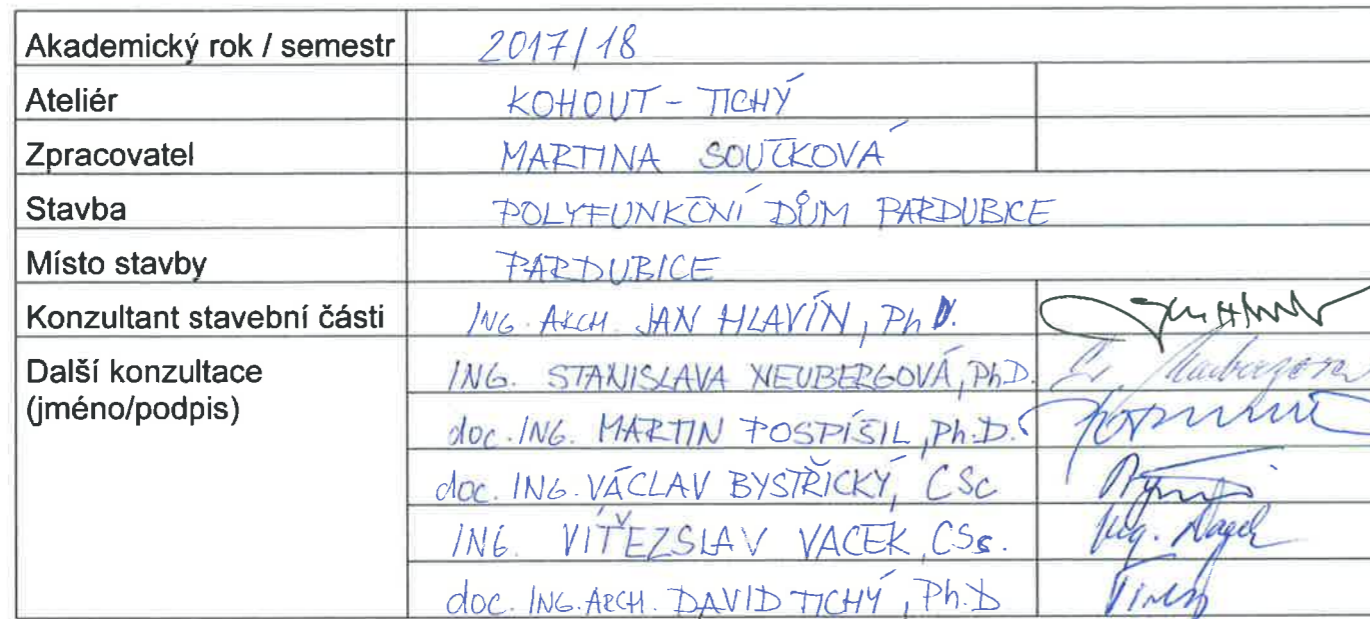 Akademický rok / semestr 2017/18
Ateliér KOHOUT - TICHÝ
Zpracovatel MARTINA SOUČKOVÁ
Stavba POLYFUNKČNÍ DŮM PARDUBICE
Místo stavby PARDUBICE
Konzultant stavební části ING. ARCH. JAN HLAVÍN, Ph.D.
Další konzultace ING. STANISLAVA NEUBERGOVÁ, PhD.
(jméno/podpis) doc. ING. MARTIN POSPÍŠIL, Ph.D.
doc. ING. VÁCLAV BYSTŘICKÝ, CSc
ING. VÍTĚZSLAV VACEK, CSc.
doc. ING. ARCH. DAVID TICHÝ, Ph.D